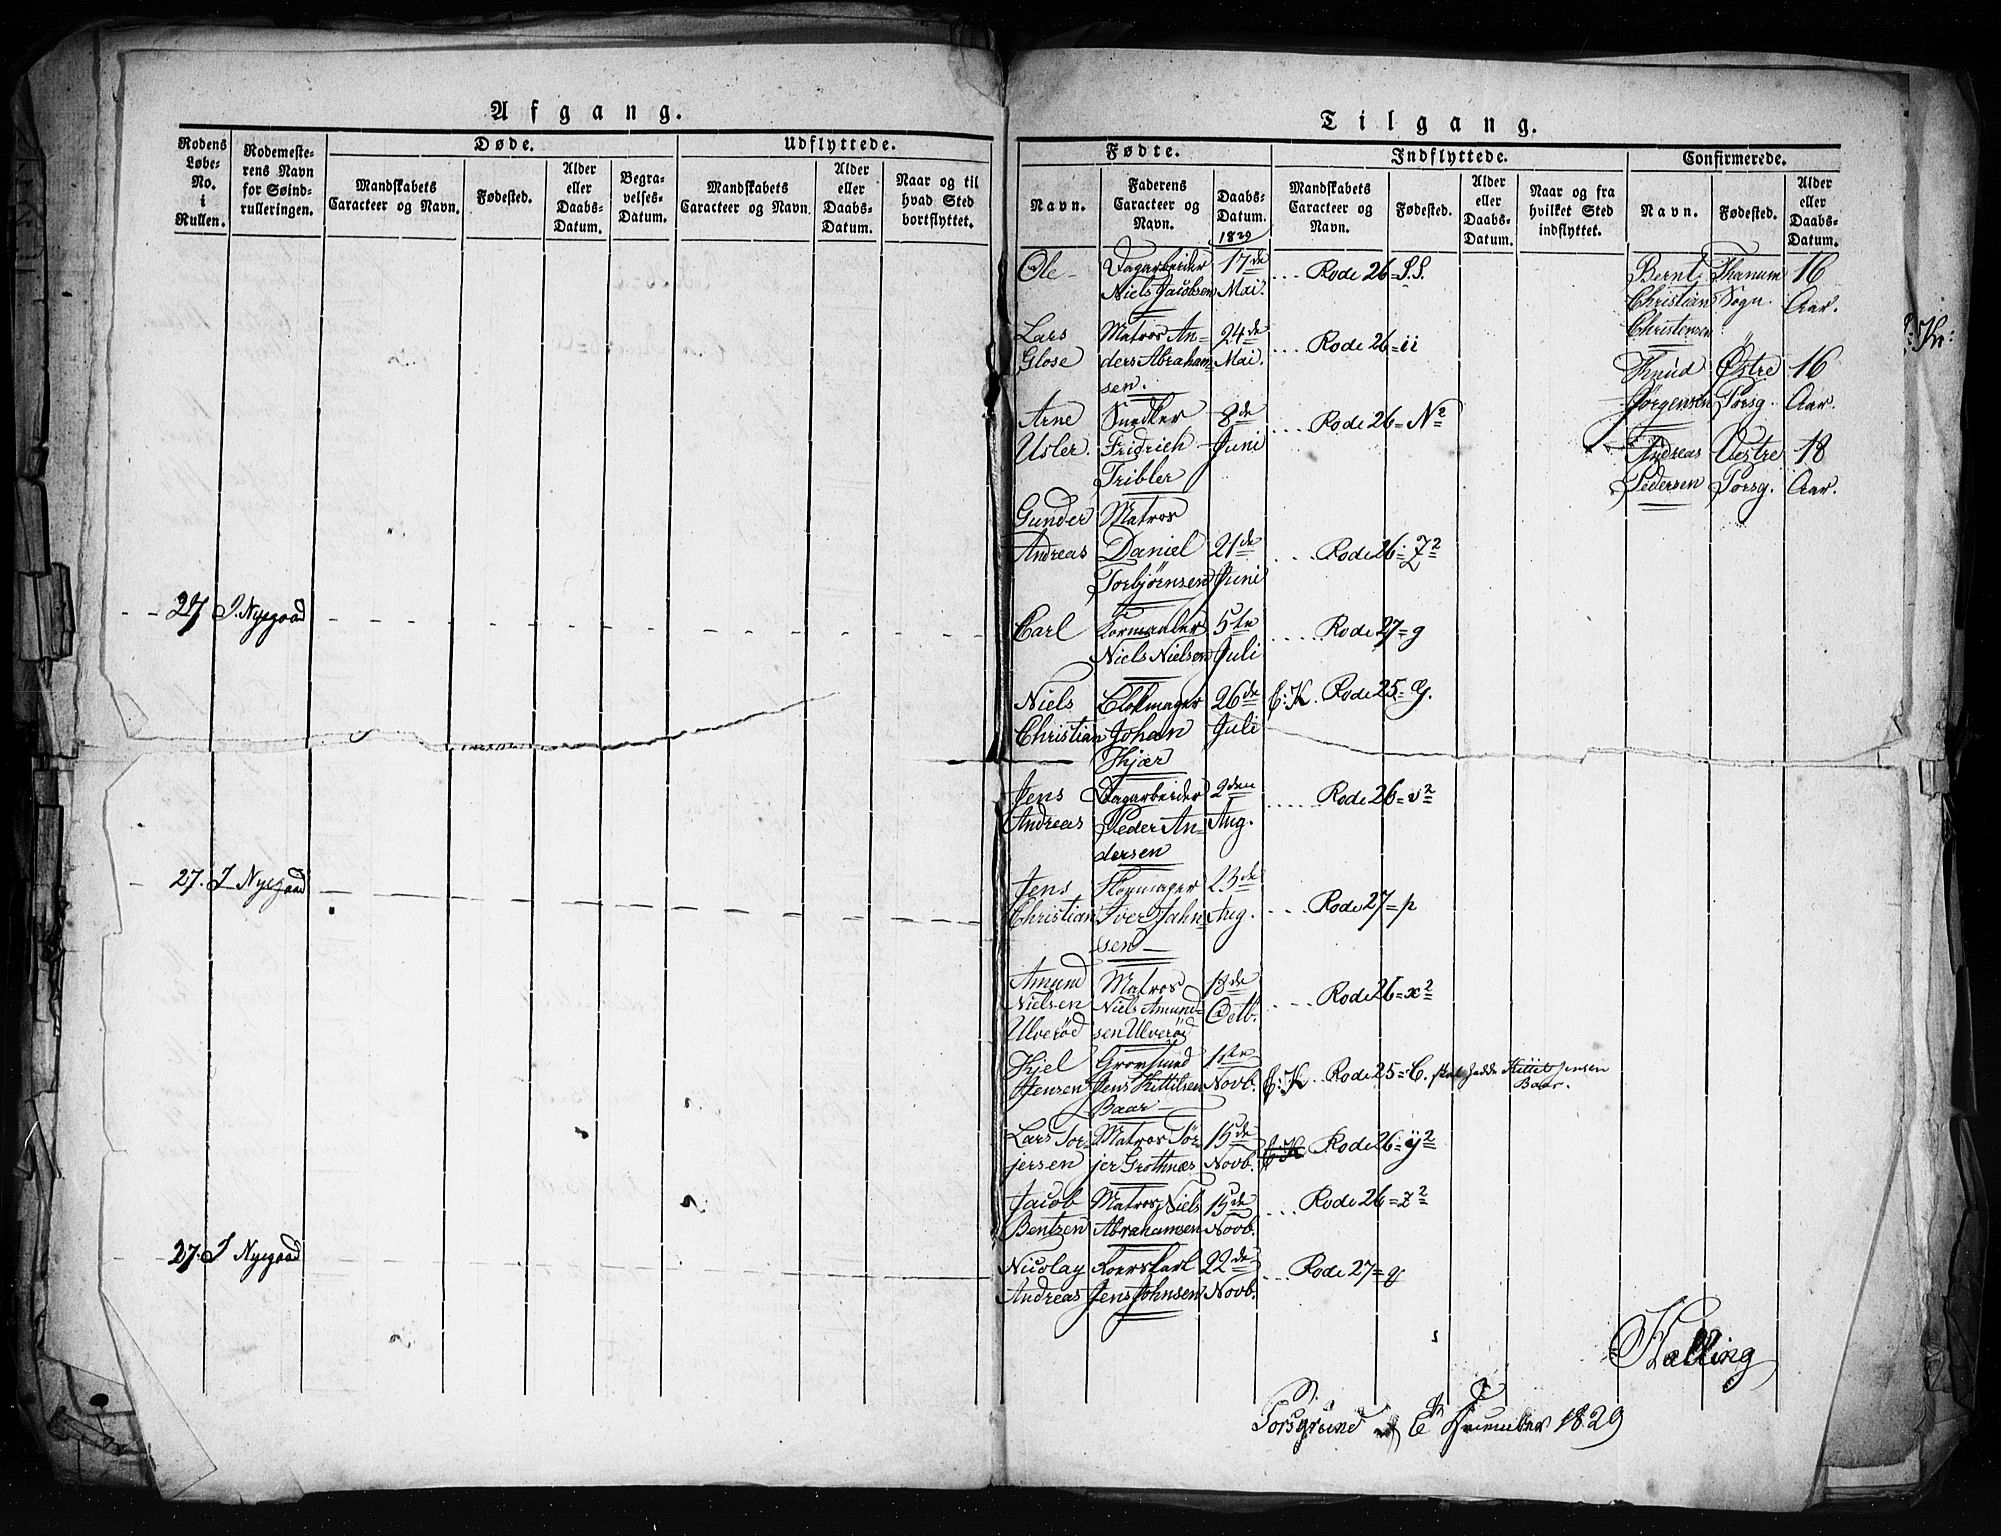 Afgang.
Rodens Løbe-No. i Rullen.
Rodemesterens Navn for Søindrulleringen.
Døde.
Mandskabets Caracteer og Navn.
Fødested.
Alder eller Daabs-Datum.
Begravelses-Datum.
Udflyttede.
Mandskabets Caracteer og Navn.
Alder eller Daabs-Datum.
Naar og til hvad Sted bortflyttet.
27 J. Nyegaad
27. J Nyegaad
27. J Nyegaad
Tilgang.
Fødte.
Navn.
Faderens Caracteer og Navn.
Daabs-Datum.
1829
Indflyttede.
Mandskabets Caracteer og Navn.
Fødested.
Alder eller Daabs-Datum.
Naar og fra hvilket Sted indflyttet.
Confirmerede.
Navn.
Fødested.
Alder eller Daabs-Datum.
Ole - Dagarbeider 17de .... Rode 26 = S.S.
Niels Jacobsen Mai.
Lars Matros An- 24de .... Rode 26 = ii
Glose ders Abraham- Mai.
sen.
Arne Snedker 8de .... Rode 26 = N2
Usler. Fridrich Juni
Tribler
Gunder Matros
Andreas Daniel 21de .... Rode 26 = Z2
Torbjørnsen Juni
Carl 5te ..... Rode 27 = g
Niels Nielsen Juli
Niels Blokmager 26de F:K. Rode 25 = G.
Christian Johan Juli
Kjær
Jens Dagarbeider 2den ..... Rode 26 = v2
Andreas Peder An- Aug.
dersen
Jens 23de .... Rode 27 = p
Christian Iver Jahn- Aug.
sen -
Amund Matros 18de .... Rode 26 = x2
Nielsen Niels Amund- Octb.
Ulverød sen Ulverød
Kjel 1ste F:K Rode 25 = C. skal hedde Kittil Jensen
Jensen Jens Kittilsen Novb. Baar.
Baar -
Lars Tor- Matros Tør- 15de F:K Rode 26 = ij2
jersen jer Grothnæs Novb.
Jacob Matros Niels 15de .... Rode 26 = z2
Bentzen Abrahamsen Novb.
Nicolay Koerskarl 22de .... Rode 27 = q
Andreas Jens Johnsen Novb.
Bernt Thanum 16
Christian Sogn. Aar.
Christensen
Knud Østre 16
Jørgensen Porsg. Aar.
Andreas Vestre 18
Pedersen Porsg. Aar.
Halling
Porsgrund d 6te December 1829